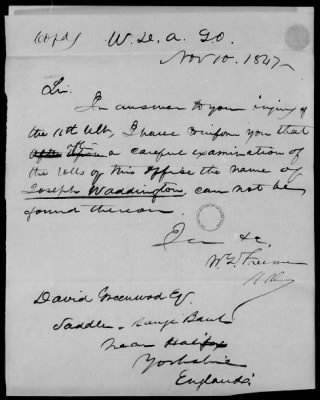 Copy
W. D. A. G. O.
Nov 10. 1847
Sir.
In answer to your inquiry of
the 10th Ulto, I have to inform you that
after a careful examination of
the rolls of this Office the name of
Joseph Waddington, can not be
found thereon.
I am &c.
W. G. Freeman
David Greenwood Esq.
Saddler - Range Bank
near Halifax
Yorkshire
England.